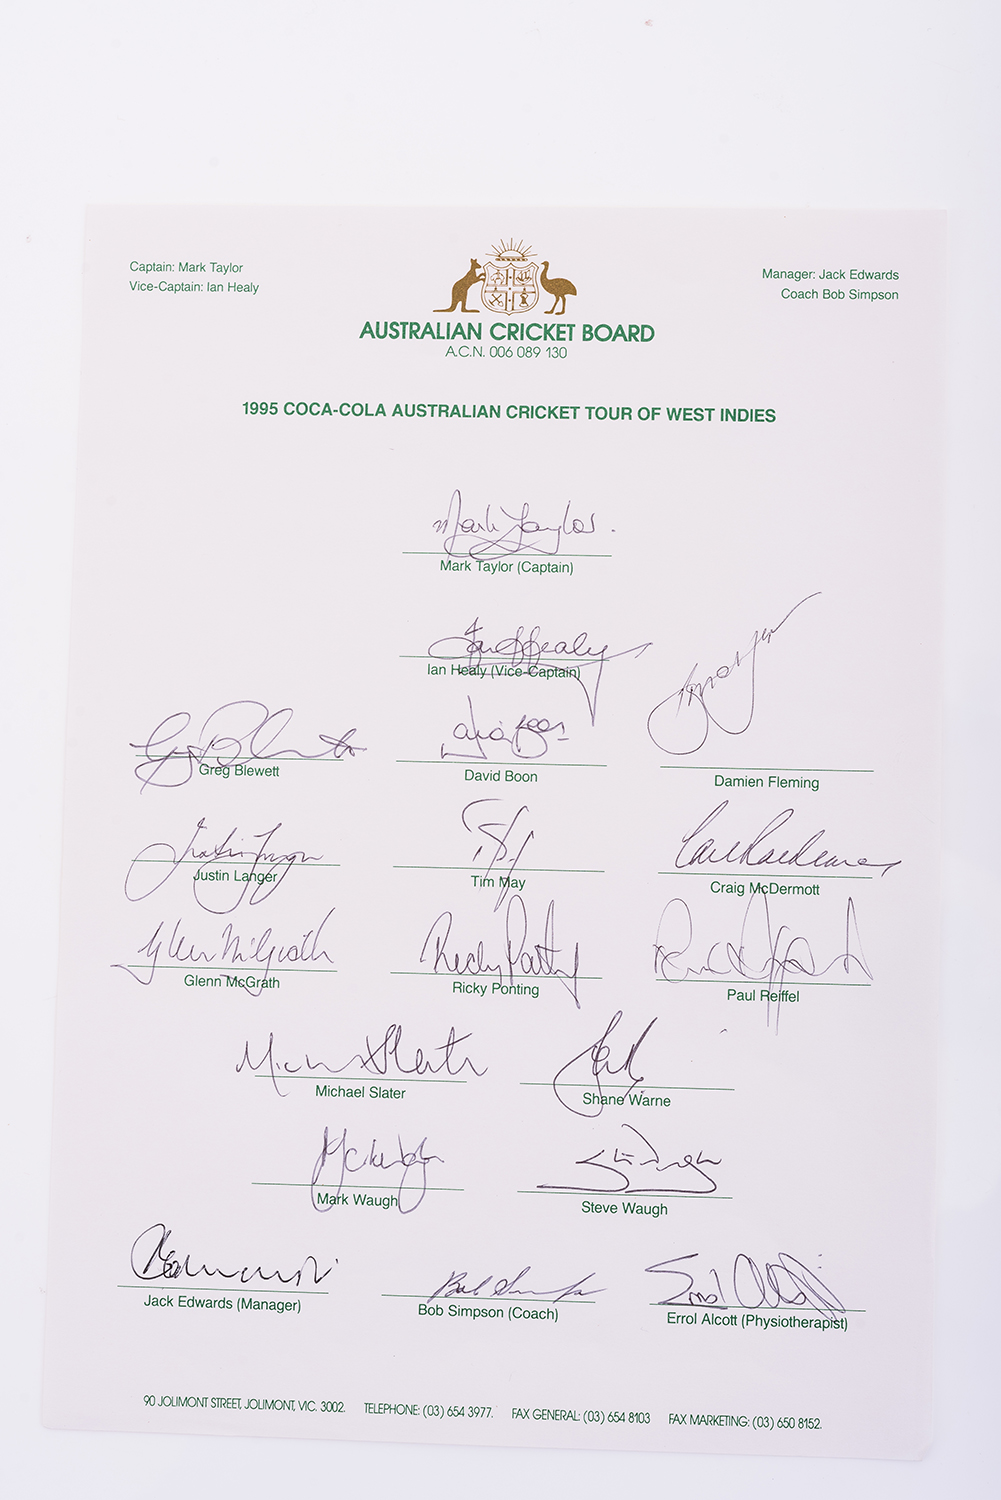 Captain: Mark Taylor
Vice-Captain: Ian Healy
Manager: Jack Edwards
Coach Bob Simpson
AUSTRALIAN CRICKET BOARD
A.C.N. 006 089 130
1995 COCA-COLA AUSTRALIAN CRICKET TOUR OF WEST INDIES
Mark Taylor
Mark Taylor (Captain)
Ian Healy
Ian Healy (Vice-Captain)
Greg Blewett
David Boon
Damien Fleming
Justin Langer
Tim May
Craig McDermott
Glenn McGrath
Ricky Ponting
Glenn McGrath
Ricky Ponting
Paul Reiffel
Michael Slater
Shane Warne
Mark Waugh
Steve Waugh
Bob Simpson
Errol Alcott
Jack Edwards (Manager)
Bob Simpson (Coach)
Errol Alcott (Physiotherapist)
90 JOLIMONT STREET, JOLIMONT, VIC. 3002. TELEPHONE: (03) 654 3977. FAX GENERAL: (03) 654 8103 FAX MARKETING: (03) 650 8152.